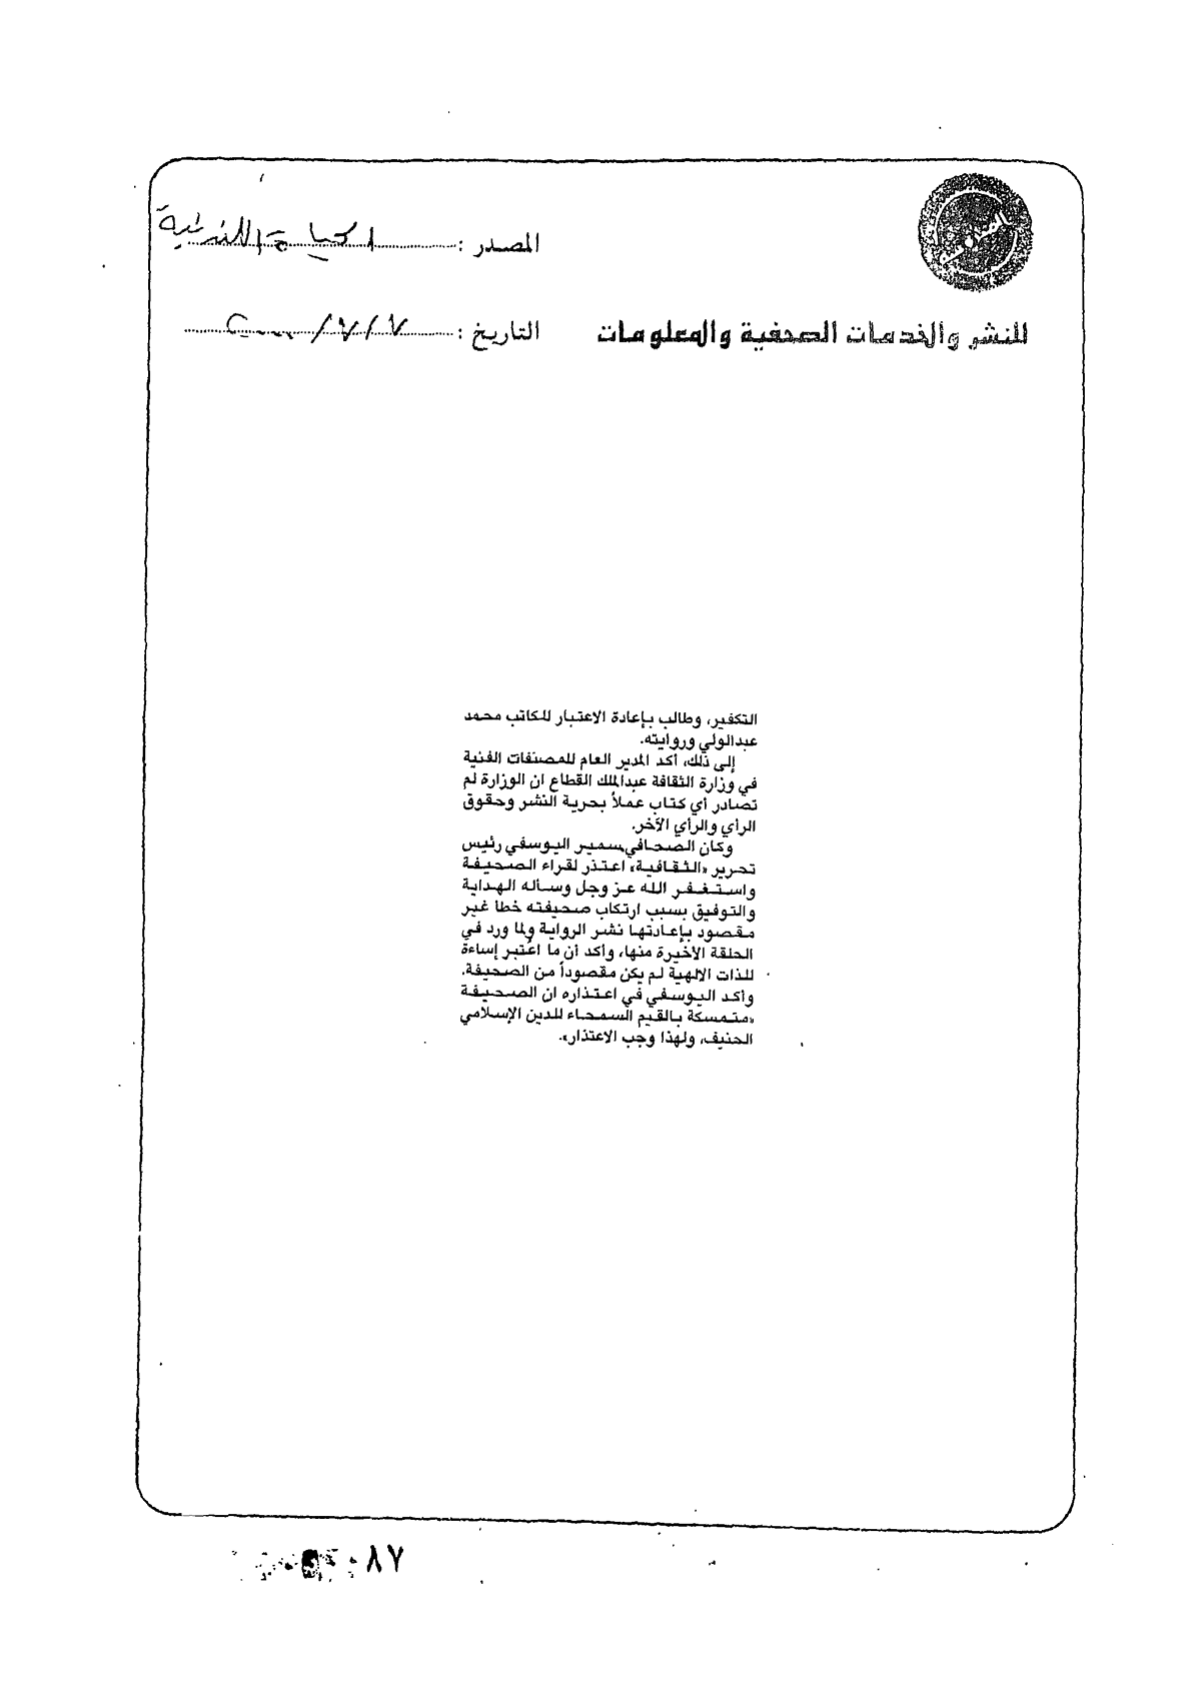 المصدر : الحياة اللندنية
للنشر والخدمات الصحفية والمعلومات
التاريخ : ٧/٧/٢٠٠٠
التكفير، وطالب بإعادة الاعتبار للكاتب محمد
عبدالولي وروايته.
إلى ذلك، أكد المدير العام للمصنفات الفنية
في وزارة الثقافة عبدالملك القطاع ان الوزارة لم
تصادر أي كتاب عملاً بحرية النشر وحقوق
الرأي والرأي الآخر.
وكان الصحافي سمير اليوسفي رئيس
تحرير «الثقافية» اعتذر لقراء الصحيفة
واستغفر الله عز وجل وسأله الهداية
والتوفيق بسبب ارتكاب صحيفته خطا غير
مقصود بإعادتها نشر الرواية ولما ورد في
الحلقة الأخيرة منها، وأكد أن ما اعتبر إساءة
للذات الالهية لم يكن مقصوداً من الصحيفة.
وأكد اليوسفي في اعتذاره ان الصحيفة
«متمسكة بالقيم السمحاء للدين الإسلامي
الحنيف، ولهذا وجب الاعتذار».
٨٧